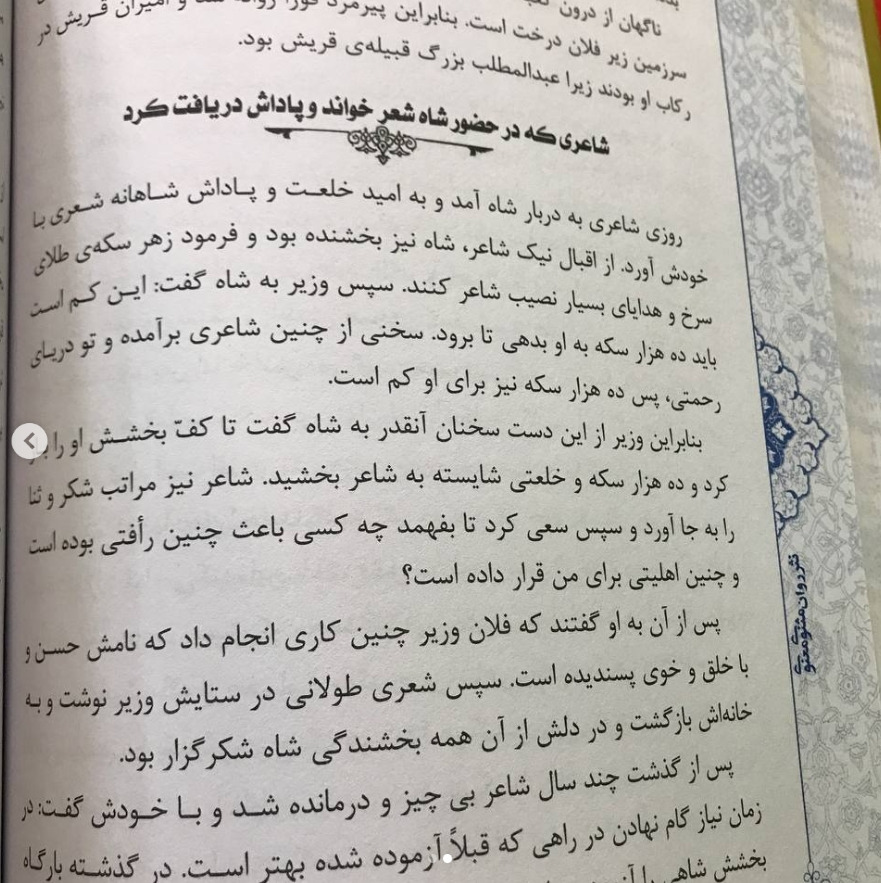 ناگهان از درون
سرزمین زیر فلان درخت است. بنابراین پیرمرد فورا روانه شد و امیران قریش در
رکاب او بودند زیرا عبدالمطلب بزرگ قبیله‌ی قریش بود.
شاعری که در حضور شاه شعر خواند و پاداش دریافت کرد
روزی شاعری به دربار شاه آمد و به امید خلعت و پاداش شاهانه شعری با
خودش آورد. از اقبال نیک شاعر، شاه نیز بخشنده بود و فرمود زهر سکه‌ی طلای
سرخ و هدایای بسیار نصیب شاعر کنند. سپس وزیر به شاه گفت: این کم است
باید ده هزار سکه به او بدهی تا برود. سخنی از چنین شاعری برآمده و تو دریای
رحمتی، پس ده هزار سکه نیز برای او کم است.
بنابراین وزیر از این دست سخنان آنقدر به شاه گفت تا کفّ بخشش او را
کرد و ده هزار سکه و خلعتی شایسته به شاعر بخشید. شاعر نیز مراتب شکر و ثنا
را به جا آورد و سپس سعی کرد تا بفهمد چه کسی باعث چنین رأفتی بوده است
و چنین اهلیتی برای من قرار داده است؟
پس از آن به او گفتند که فلان وزیر چنین کاری انجام داد که نامش حسن و
با خلق و خوی پسندیده است. سپس شعری طولانی در ستایش وزیر نوشت و به
خانه‌اش بازگشت و در دلش از آن همه بخشندگی شاه شکرگزار بود.
پس از گذشت چند سال شاعر بی چیز و درمانده شد و با خودش گفت: در
زمان نیاز گام نهادن در راهی که قبلاً آزموده شده بهتر است. در گذشته بارگاه
بخشش شاهی را
نثر روان مثنوی معنوی